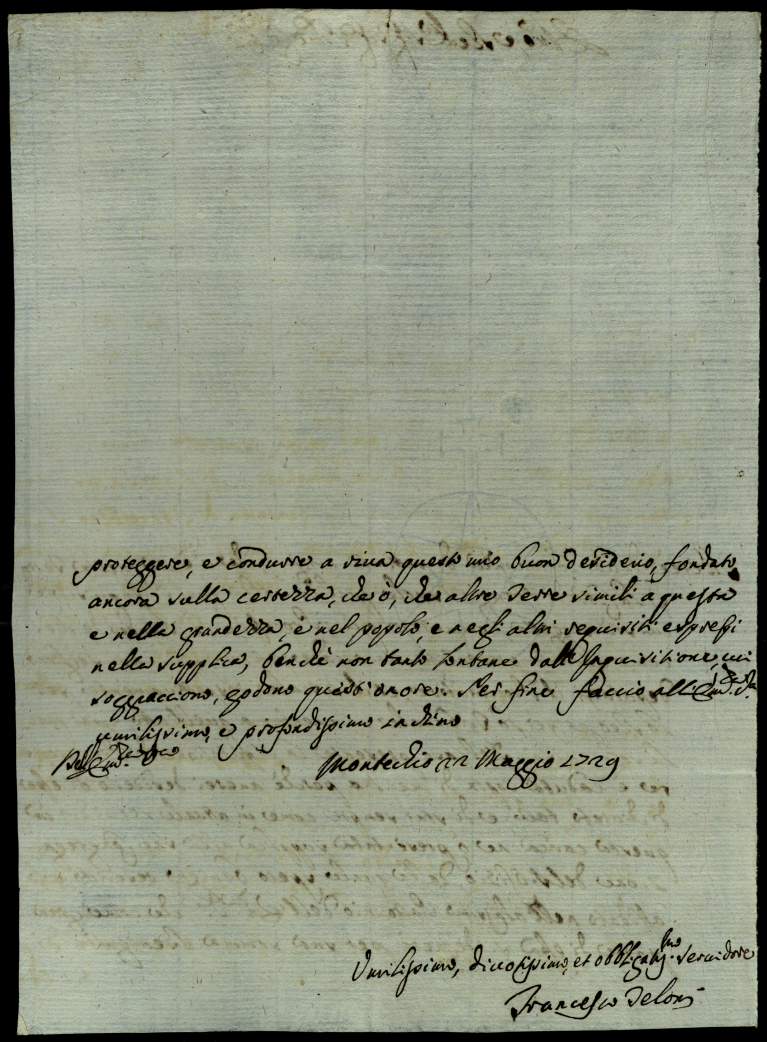 proteggere, e condurre a riva questo mio buon desiderio, fondato
ancora sulla certezza, che ò, che altre Terre simili a questa
e nella grandezza, e nel popolo, e negli altri requisiti espressi
nella supplica, benchè non tanto lontane dall'Inquisitione, cui
soggiacciono, godono quest'onore. Per fine faccio all'
umilissimo, e profondissimo inchino
Monteclio 22 Maggio 1729
Umilissimo, divotissimo, et obbligatissmo Servidore
Francesco Deloni